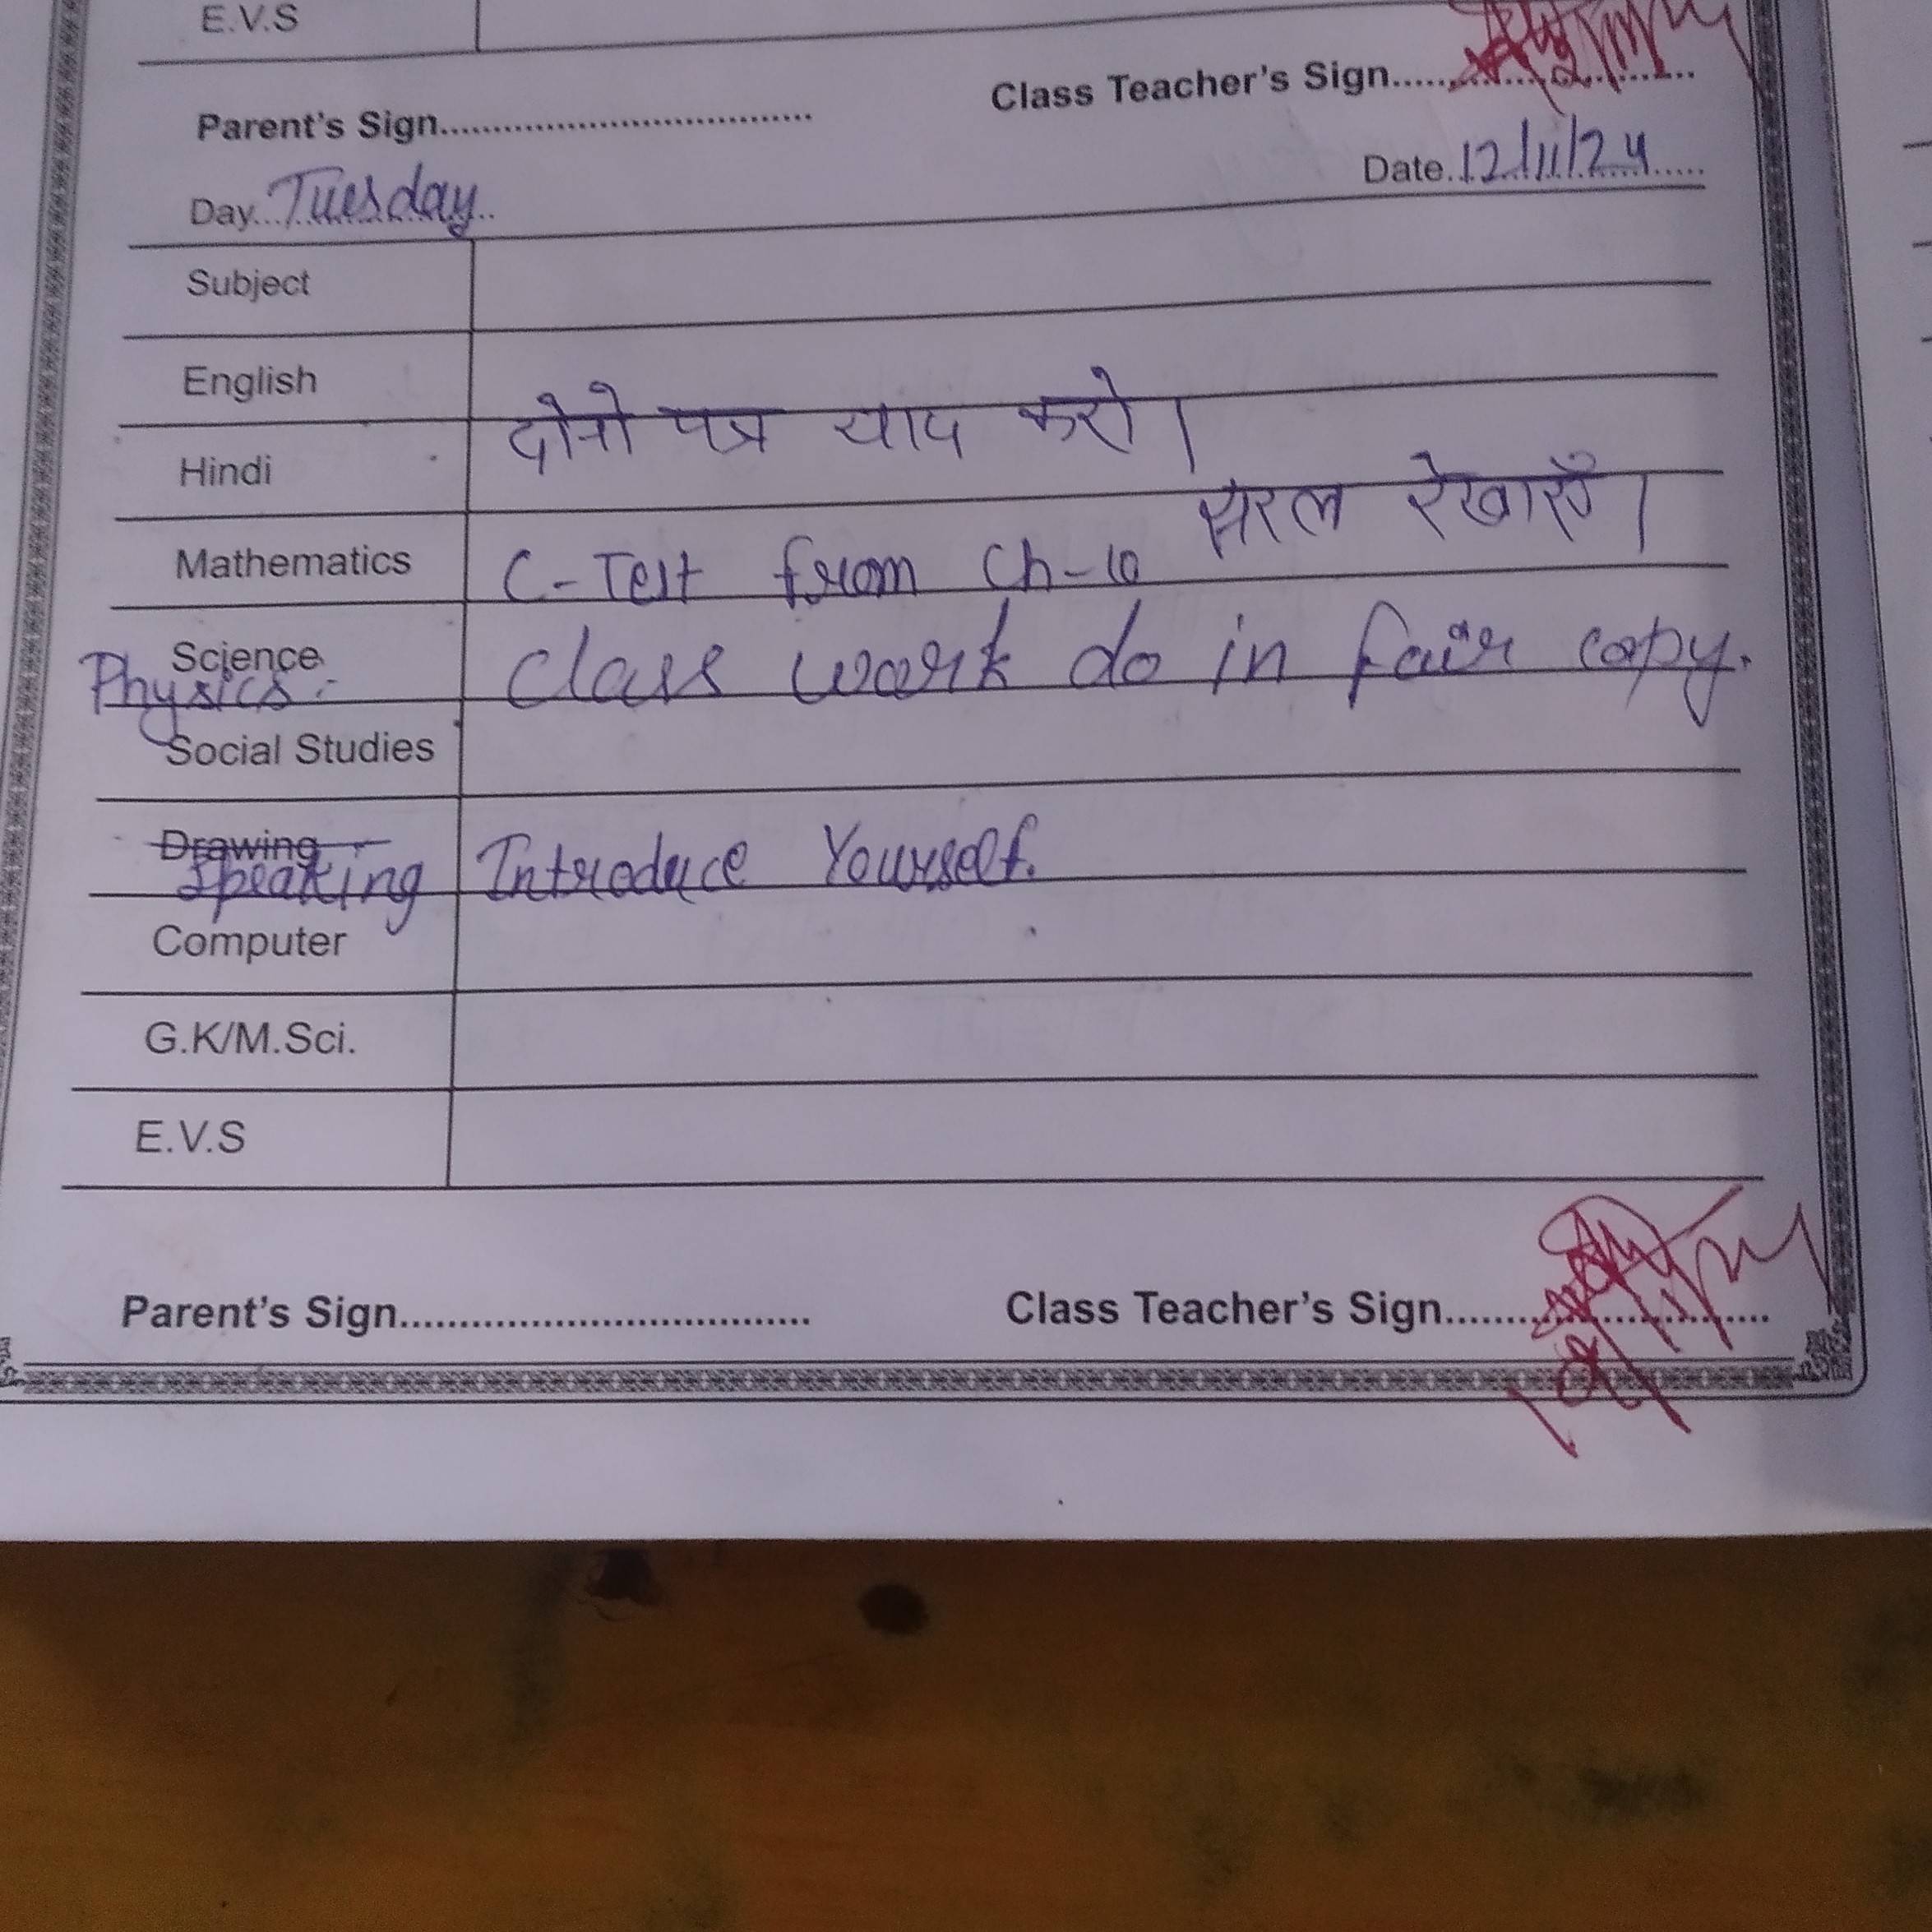 E.V.S
Parent's Sign.................................... Class Teacher's Sign..........................
Day...Tuesday.. Date.12/11/24.....
Subject
English
Hindi दोनो पत्र याद करो।
Mathematics C-Test from Ch-10 सरल रेखाएँ।
Science
Physics:- Class work do in fair copy.
Social Studies
Drawing
Speaking Introduce Yourself.
Computer
G.K/M.Sci.
E.V.S
Parent's Sign................................... Class Teacher's Sign...........................